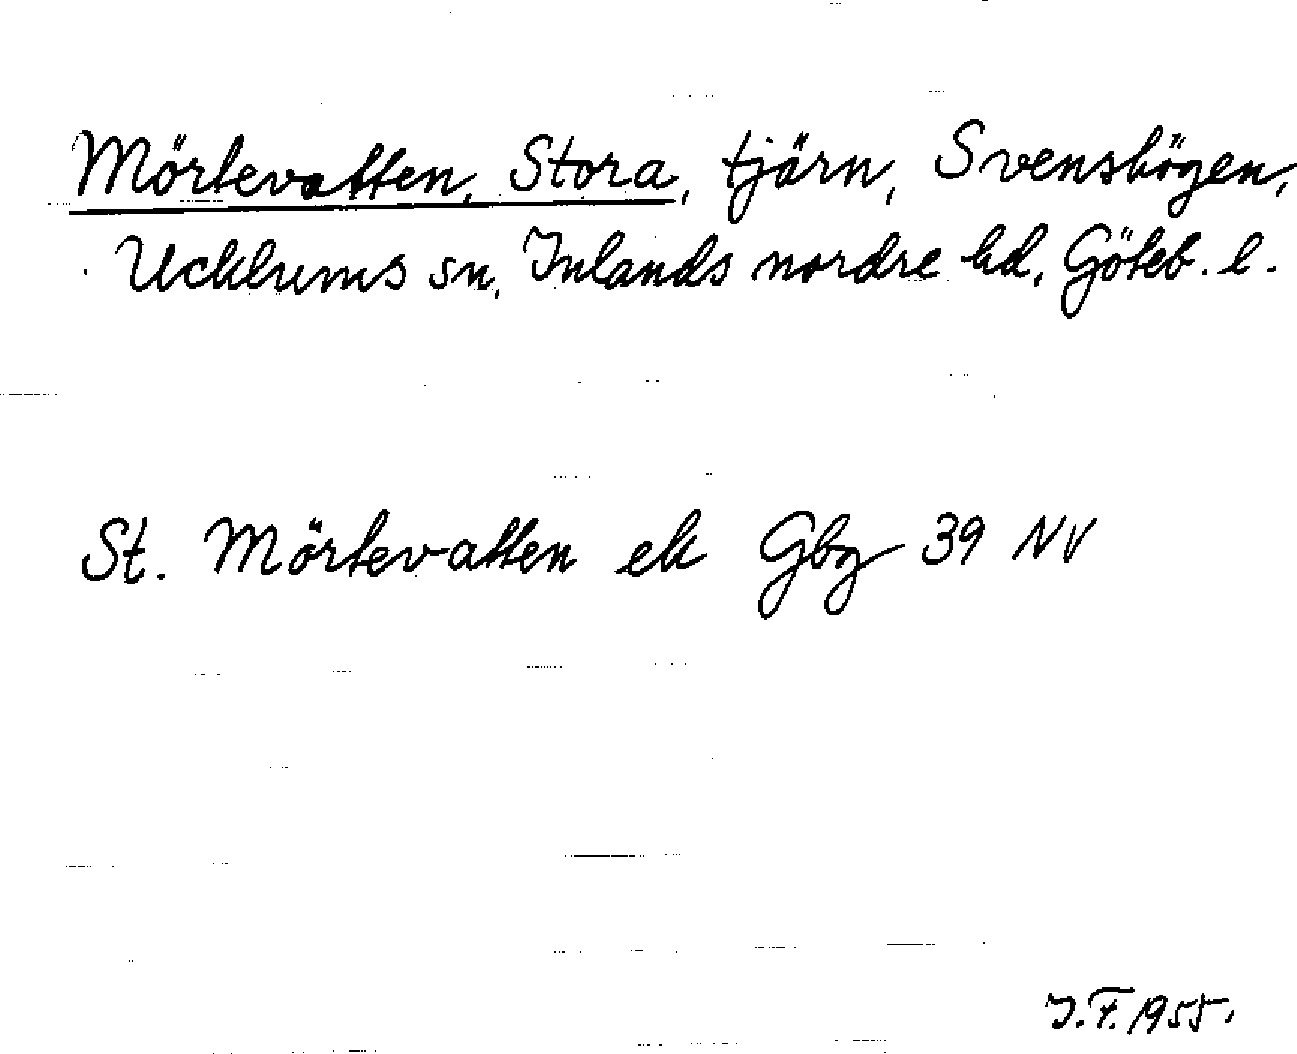 Mörtevatten, Stora, tjärn, Svenshögen,
Ucklums sn, Inlands nordre hd, Göteb. l.
St. Mörtevatten ek Gbg 39 NV
J.F. 1955.